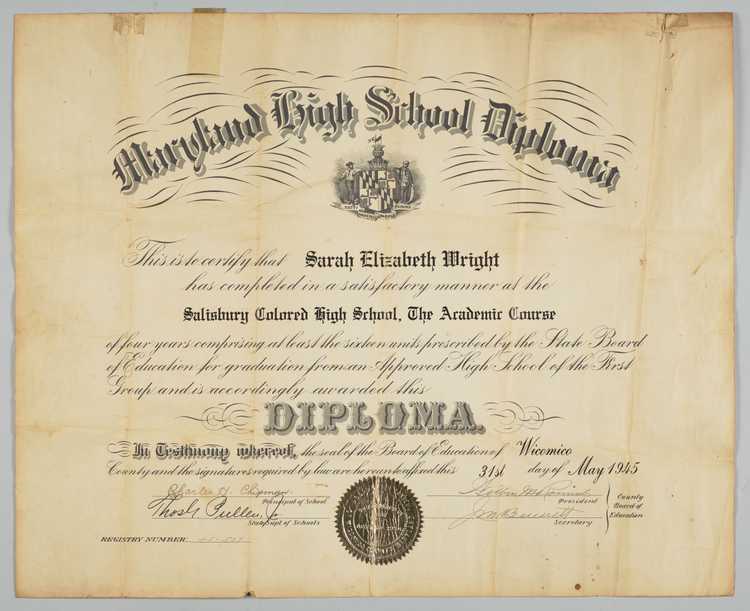 Maryland High School Diploma
This is to certify that Sarah Elizabeth Wright
has completed in a satisfactory manner at the
Salisbury Colored High School, The Academic Course
of four years comprising at least the sixteen units prescribed by the State Board
of Education for graduation from an Approved High School of the First
Group and is accordingly awarded this
DIPLOMA.
In Testimony whereof, the seal of the Board of Education of Wicomico
County and the signatures required by law are hereunto affixed this 31st day of May 1945
Charles H. Chipman
Principal of School
President
Thos G. Pullen, Jr.
State Supt. of Schools
J. M. Bennett
Secretary
County
Board of
Education
REGISTRY NUMBER